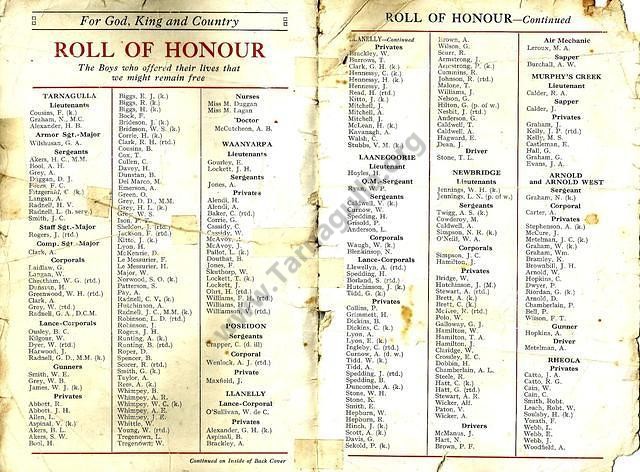 For God, King and Country
ROLL OF HONOUR
The Boys who offered their lives that
we might remain free
TARNAGULLA
Lieutenants
Cousins, F. (k.)
Graham, N., M.C.
Alexander, H. B.
Armor Sgt.-Major
Wilshusan, G. A.
Sergeants
Akers, H. C., M.M.
Bool, A. H.
Grey, A.
Duggan, D. J.
Fitzgerald, C. (k.)
Langan, A.
Poulter, H. V.
Radnell, L. (h. serv.)
Smith, J. C.
Staff Sgt.-Major
Rogers, J. (rtd.)
Comp. Sgt.-Major
Clark, A.
Corporals
Laidlaw, G.
Langan, W.
Cheetham, W. G. (rtd.)
Donovan, H.
Greenwood, W. H. (rtd.)
Clark, A.
Grey, W. (rtd.)
Radnell, G. A., D.C.M.
Lance-Corporals
Ousley, B. C.
Kilgour, W.
Dyer, W. (rtd.)
Harwood, J.
Radnell, G. D., M.M. (k.)
Gunners
Smith, W. E.
Grey, W. B.
James, W. J. (k.)
Privates
Abbott, R.
Abbott, J. H.
Allen, L.
Aspinall, V. (k.)
Akers, B. L.
Akers, S. W.
Bool, H.
Biggs, E. J. (k.)
Biggs, R. (k.)
Biggs, H. (k.)
Bock, F.
Bridgson, J. (k.)
Bridgson, W. S. (k.)
Corrie, H. (k.)
Clark, R. H. (rtd.)
Cousins, B.
Cox, T.
Cullen, C.
Davey, H.
Dunstan, B.
Del Marco, M.
Emerson, A.
Green, O.
Grey, D. D., M.M.
Grey, H. L. (k.)
Grey, W. S.
Ison, P.
Sheldon, J. (rtd.)
Jackson, T.
Kitto, J. (k.)
Lyon, H.
McKenzie, D.
Le Messurier, F.
Le Messurier, H.
Major, W.
Norwood, S. O. (k.)
Patterson, S.
Pay, A.
Radnell, C. V. (k.)
Hutchinson, A.
Radnell, J. C., M.M. (k.)
Robinson, L. D. (rtd.)
Robinson, J.
Rogers, J. H.
Runting, A. (k.)
Runting, B. (rtd.)
Roper, D.
Spencer, B.
Scorer, R. (rtd.)
Smith, G. (k.)
Taylor, A.
Rees, A. (k.)
Whimpey, B.
Whimpey, A. R.
Whimpey, W. C. (k.)
Whimpey, A. E.
Whimpey, J. E.
Whittle, W.
Young, W. (rtd.)
Tregenown, L.
Tregenown, W.
Nurses
Miss M. Duggan
Miss M. Lagan
Doctor
McCutcheon, A. B.
WAANYARPA
Lieutenants
Gourley, E.
Lockett, J. H.
Sergeants
Jones, A.
Privates
Alendi, H.
Alendi, A.
Baker, C. (rtd.)
Corrie, G.
Cassidy, C.
Cassidy, W.
McAvoy, J.
McAvoy, L.
Pallot, L. (k.)
Douthat, B.
Jones, F.
Skelthorp, W.
Lockett, T. (k.)
Lockett,
Olort, H. (rtd.)
Williams, B. (rtd.)
Williams, F. (k.)
Williams, S. (rtd.)
POSEIDON
Sergeants
Trapper, C. (d. ill)
Corporal
Wenlock, A. J. (rtd.)
Private
Maxfield, J.
LLANELLY
Lance-Corporal
O'Sullivan, W. de C.
Privates
Alexander, G. H. (k.)
Aspinall, B.
Brackley, A.
Continued on Inside of Back Cover
ROLL OF HONOUR—Continued
LLANELLY—Continued
Privates
Brackley, W.
Burrows, T.
Clark, G. H. (k.)
Hennessy, C. (k.)
Hennessy, P. (k.)
Hennessy, J.
Read, H. (rtd.)
Kitto, J. (k.)
Mitchell, J.
Mitchell, A.
Mitchell, J.
McLean, H. (k.)
Kavanagh, A.
Walsh, C.
Stubbs, V. M. (k.)
LAANECOORIE
Lieutenant
Hoyles,
Q.M.-Sergeant
P.
Sergeants
Caldwell, V. (k.)
Curnow, W.
Spedding, H.
Grisold, P.
Anderson, L.
Corporals
Waugh, W. (k.)
Blenkinsop, N.
Lance-Corporals
Llewellyn, A. (rtd.)
Spedding, H.
Borland, S. (rtd.)
Hutchinson, J. (k.)
Tidd, C. (k.)
Privates
Collins, P.
Grimmett, H.
Dickins, B.
Dickins, C. (k.)
Lyon, A.
Lyon, E. (k.)
Ingleby, C. (rtd.)
Curnow, A. (d. w.)
Tidd, W. (k.)
Tidd, A.
Spedding, J. (rtd.)
Spedding, B.
Duncombe, A. (k.)
Stone, W. H.
Stone, K.
Smith, E.
Hepburn, W.
Hepburn, E.
Hinch, J. (k.)
Scott, A. (k.)
Davis, G.
Sekold, P. (k.)
Brown, A.
Wilson, G.
Scurr, R.
Armstrong, J.
Armstrong, P. (k.)
Cummins, R.
Johnson, R. (rtd.)
Malone, T.
Williams, J.
Nelson, G.
Hilton, G. (p. of w.)
Nesbit, J. (rtd.)
Anderson, G.
Caldwell, T.
Caldwell, A.
Hagward, E.
Dean, J.
Driver
Stone, T. L.
NEWBRIDGE
Lieutenants
Jennings, W. H. (k.)
Jennings, L. N. (p. of w.)
Sergeants
Twigg, A. S. (k.)
Cowderoy, M.
Caldwell, A.
Simpson, N. R. (k.)
O'Neill, W. A.
Corporals
Simpson, J. C.
Hamilton, J.
Privates
Bridge, W.
Hutchinson, J. (M.)
Stewart, A. (rtd.)
Brett, A. (k.)
Brett, C. (k.)
McLee, R. (rtd.)
Polo, W.
Galloway, G. J.
Hamilton, W.
Hamilton, T. A.
Hamilton, J.
Claridge, V.
Crossley, E. C.
Dobbin, H.
Chamberlain, A. L.
Steele, R.
Hatt, C. (k.)
Hatt, G. (rtd.)
Stewart, A. R.
Wicker, Alf.
Paton, V.
Wicker, A.
Drivers
McManus, J.
Hart, N.
Brown, P. F.
Air Mechanic
Leroux, M. A.
Sapper
Burchall, A. W.
MURPHY'S CREEK
Lieutenant
Calder, R. A.
Sapper
Calder, J.
Privates
Graham, J.
Kelly, J. P. (rtd.)
Kelly, M. S.
Castleman, E.
Hall, G.
Graham, G.
Evans, J. A.
ARNOLD
and ARNOLD WEST
Sergeant
Graham, N. (k.)
Corporal
Carter, A.
Privates
Stephenson, A. (k.)
McClure, J.
Metelman, J. C. (k.)
Graham, W. (k.)
Graham, Wm.
Bramley, K.
Brownbill, J. H.
Arnold, W.
Hopkins, C.
Dwyer, P.
Riordan, G. (k.)
Arnold, D.
Chamberlain, P.
Bell, P.
Wilson, F. T.
Gunner
Hopkins, A.
Driver
Metelman, A.
RHEOLA
Privates
Catto, J. A.
Catto, R. G.
Cain, W.
Cain, C.
Smith, Robt.
Leach, Robt.
Soulsby, H. (k.)
Yorath, F.
Webb, L.
Webb, E.
Webb, J.
Woodfield, A.